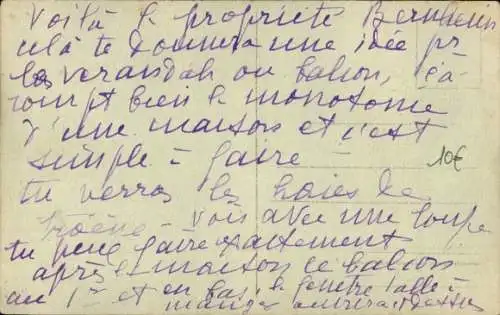 Voilà la propriété Bernheim
celà te donnera une idée pr
les verandah ou balcon, çà
rompt bien la monotonie
d'une maison et c'est
simple à faire -
10€
tu verras les haies de
troène - vois avec une loupe
tu peux faire exactement
après la maison ce balcon
au 1er et en bas la fenêtre salle à
manger ouvrira dessus